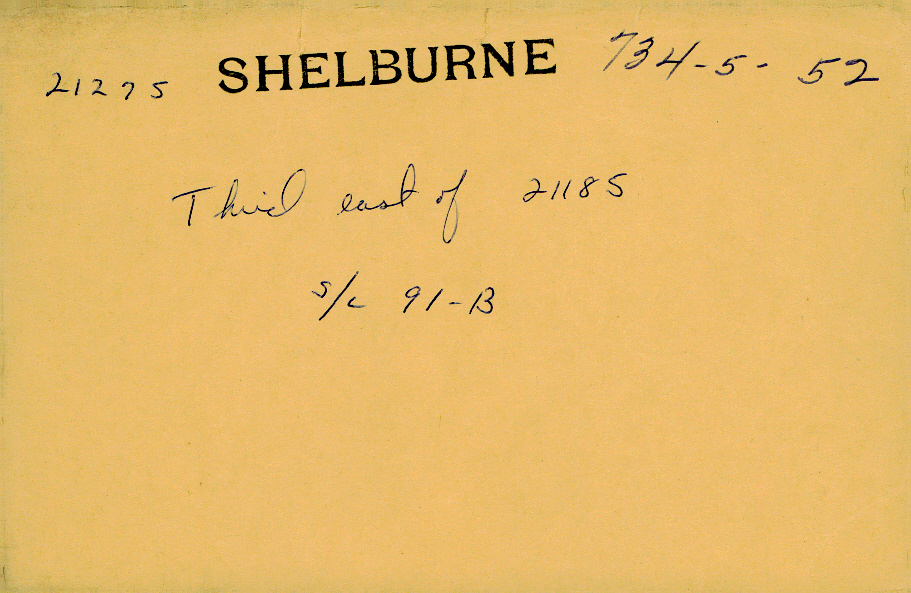 21275 SHELBURNE 734-5-52
Third east of 21185
s/c 91-B